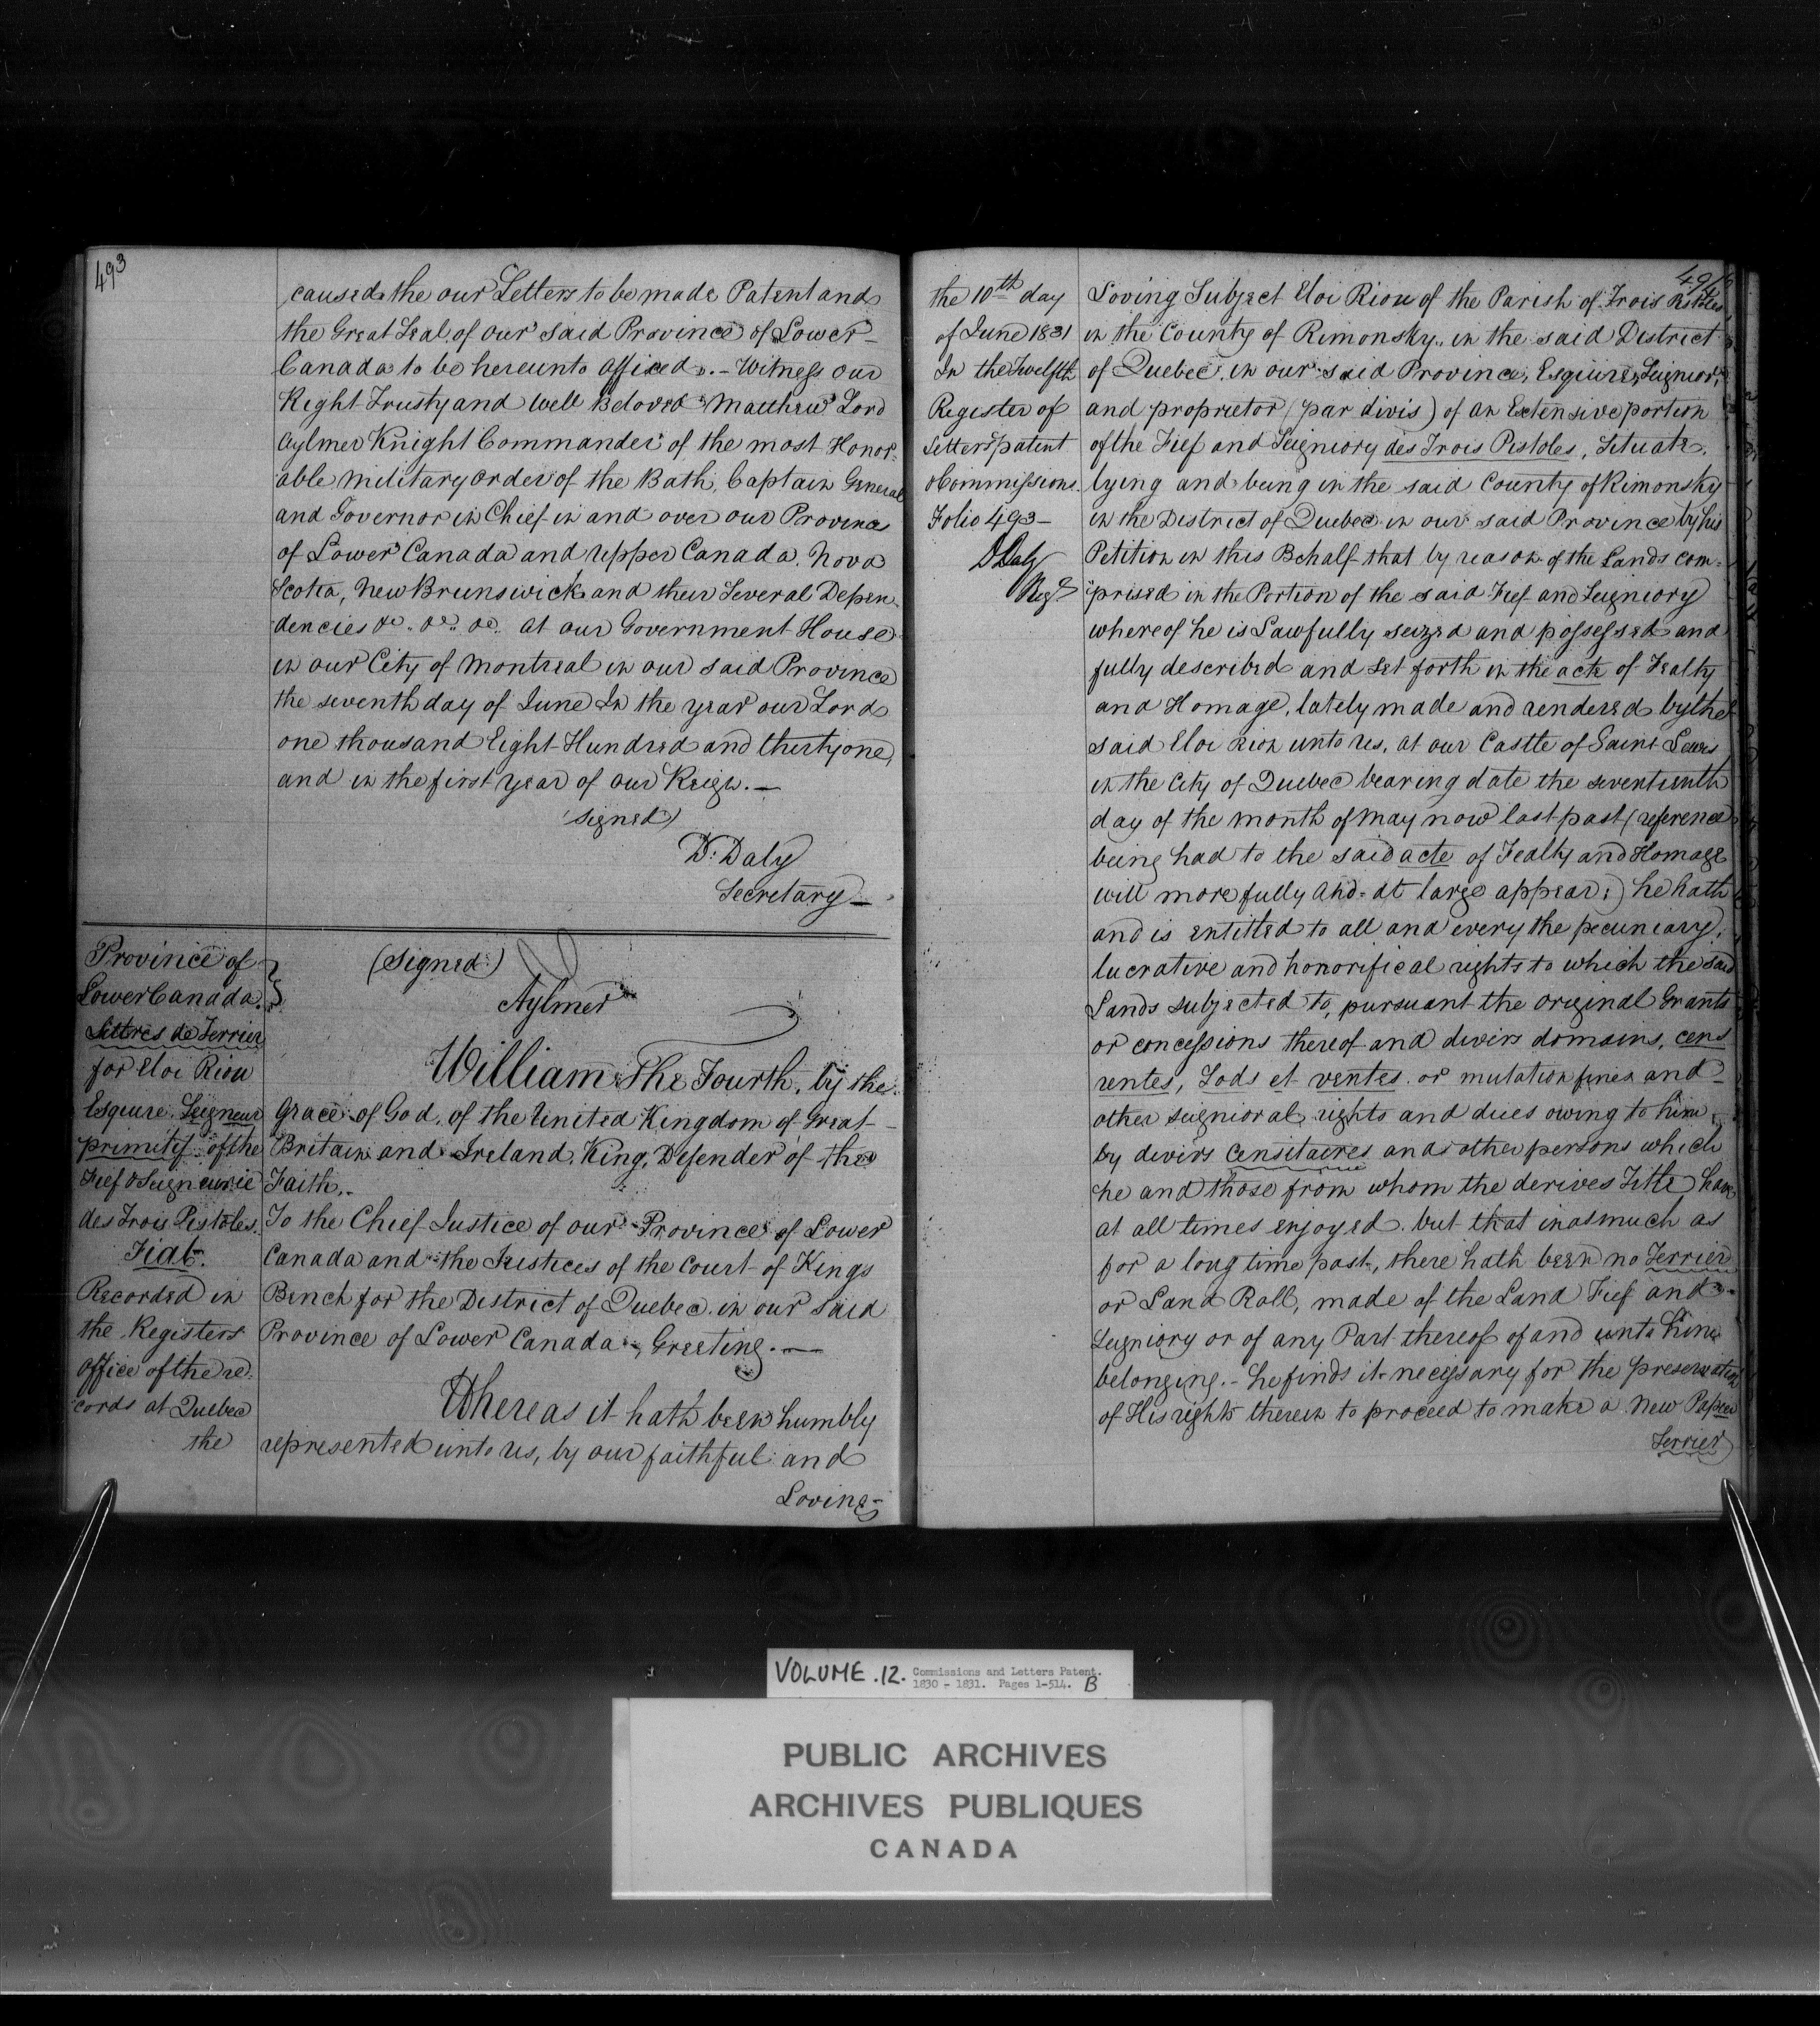 493
caused the our Letters to be made Patent and
the Great Seal of our said Province of Lower
Canada to be hereunto affixed. - Witness our
Right Trusty and Well Beloved Matthew Lord
Aylmer Knight Commander of the most Honor-
able Military order of the Bath, Captain General
and Governor in Chief in and over our Province
of Lower Canada and upper Canada. Nova
Scotia, New Brunswick and their Several Depen-
dencies &c. &c. &c. at our Government House
in our City of Montreal in our said Province
the seventh day of June In the year our Lord
one thousand Eight Hundred and thirty one,
and in the first year of our Reign. —
(signed)
D. Daly
Secretary —
Province of
Lower Canada.
Lettres de Terrier
for Eloi Riou
Esquire. Seigneur
primitif of the
Fief & Seigneurie
des Trois Pistoles.
Fiat.
Recorded in
the Registers
office of the re-
cords at Quebec
the
(Signed)
Aylmer
William The Fourth, by the
Grace of God, of the United Kingdom of Great
Britain and Ireland, King, Defender of the
Faith. -
To the Chief Justice of our Province of Lower
Canada and the Justices of the Court of Kings
Bench for the District of Quebec in our said
Province of Lower Canada, Greeting. —
Whereas it hath been humbly
represented unto us, by our faithful and
Loving
494
the 10th day
of June 1831
In the Twelfth
Register of
Letters patent
& Commissions.
Folio 493 -
D Daly
Regr
Loving Subject Eloi Riou of the Parish of Trois Pistoles,
in the County of Rimonsky, in the said District
of Quebec, in our said Province, Esquire, Seignior,
and proprietor (par divis) of an Extensive portion
of the Fief and Seigniory des Trois Pistoles, Situate,
lying and being in the said County of Rimonsky
in the District of Quebec in our said Province by his
Petition in this Behalf that by reason of the Lands com-
prised in the Portion of the said Fief and Seigniory
whereof he is Lawfully seized and possessed and
fully described and set forth in the acte of Fealty
and Homage, lately made and rendered by the
said Eloi Riou unto us, at our Castle of Saint Lewis
in the City of Quebec bearing date the seventeenth
day of the month of May now last past (reference
being had to the said acte of Fealty and Homage
will more fully and at large appear;) he hath
and is entitled to all and every the pecuniary,
lucrative and honorifical rights to which the said
Lands subjected to, pursuant the original Grants
or concessions thereof and divers domains, cens
rentes, Lods et ventes or mutation fines and
other seignioral rights and dues owing to him
by divers Censitaires and other persons which
he and those from whom the derives Title have
at all times enjoyed. but that inasmuch as
for a long time past, there hath been no Terrier
or Land Roll, made of the Land Fief and
Seigniory or of any Part thereof of and unto him
belonging. - he finds it necessary for the preservation
of His rights therein to proceed to make a New Papier
Terrier
VOLUME .12. Commissions and Letters Patent.
1830 - 1831. Pages 1-514. B
PUBLIC ARCHIVES
ARCHIVES PUBLIQUES
CANADA